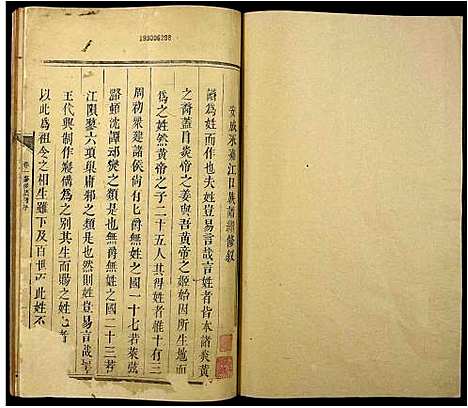 199006298
安成水 江口族譜 修叙
譜爲姓而作也夫姓豈易言哉言姓者皆本諸炎黃
之裔蓋目炎帝之姜與吾黃帝之姬始因所生地而
爲之姓然黃帝之子二十五人其得姓者惟十有三
周初衆建諸侯尚有七爵無姓之國一十七若萊弦
潞頓沈譚邧樊之類是也無爵無姓之國二十三若
江隕蓼六項巢庸邢之類是也然則姓豈易言哉
王代興制作寖備爲之别其生而賜之姓
以此爲祖令之相生雖下及百世 此姓